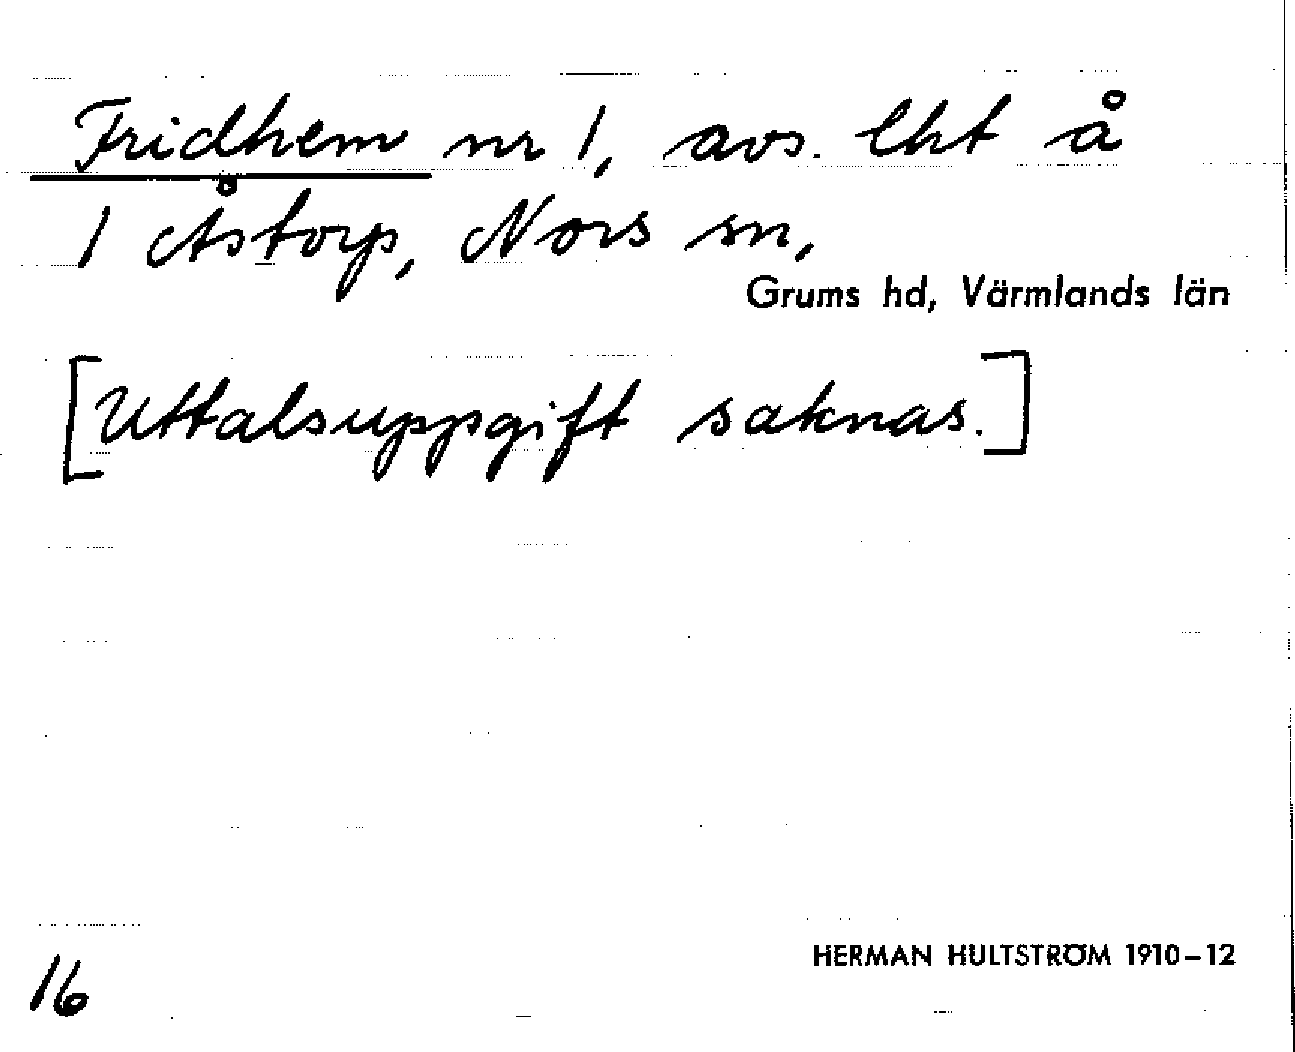 Fridhem nr 1, avs. lht å
1 Åstorp, Nors sn,
Grums hd, Värmlands län
[Uttalsuppgift saknas.]
16
HERMAN HULTSTRÖM 1910–12